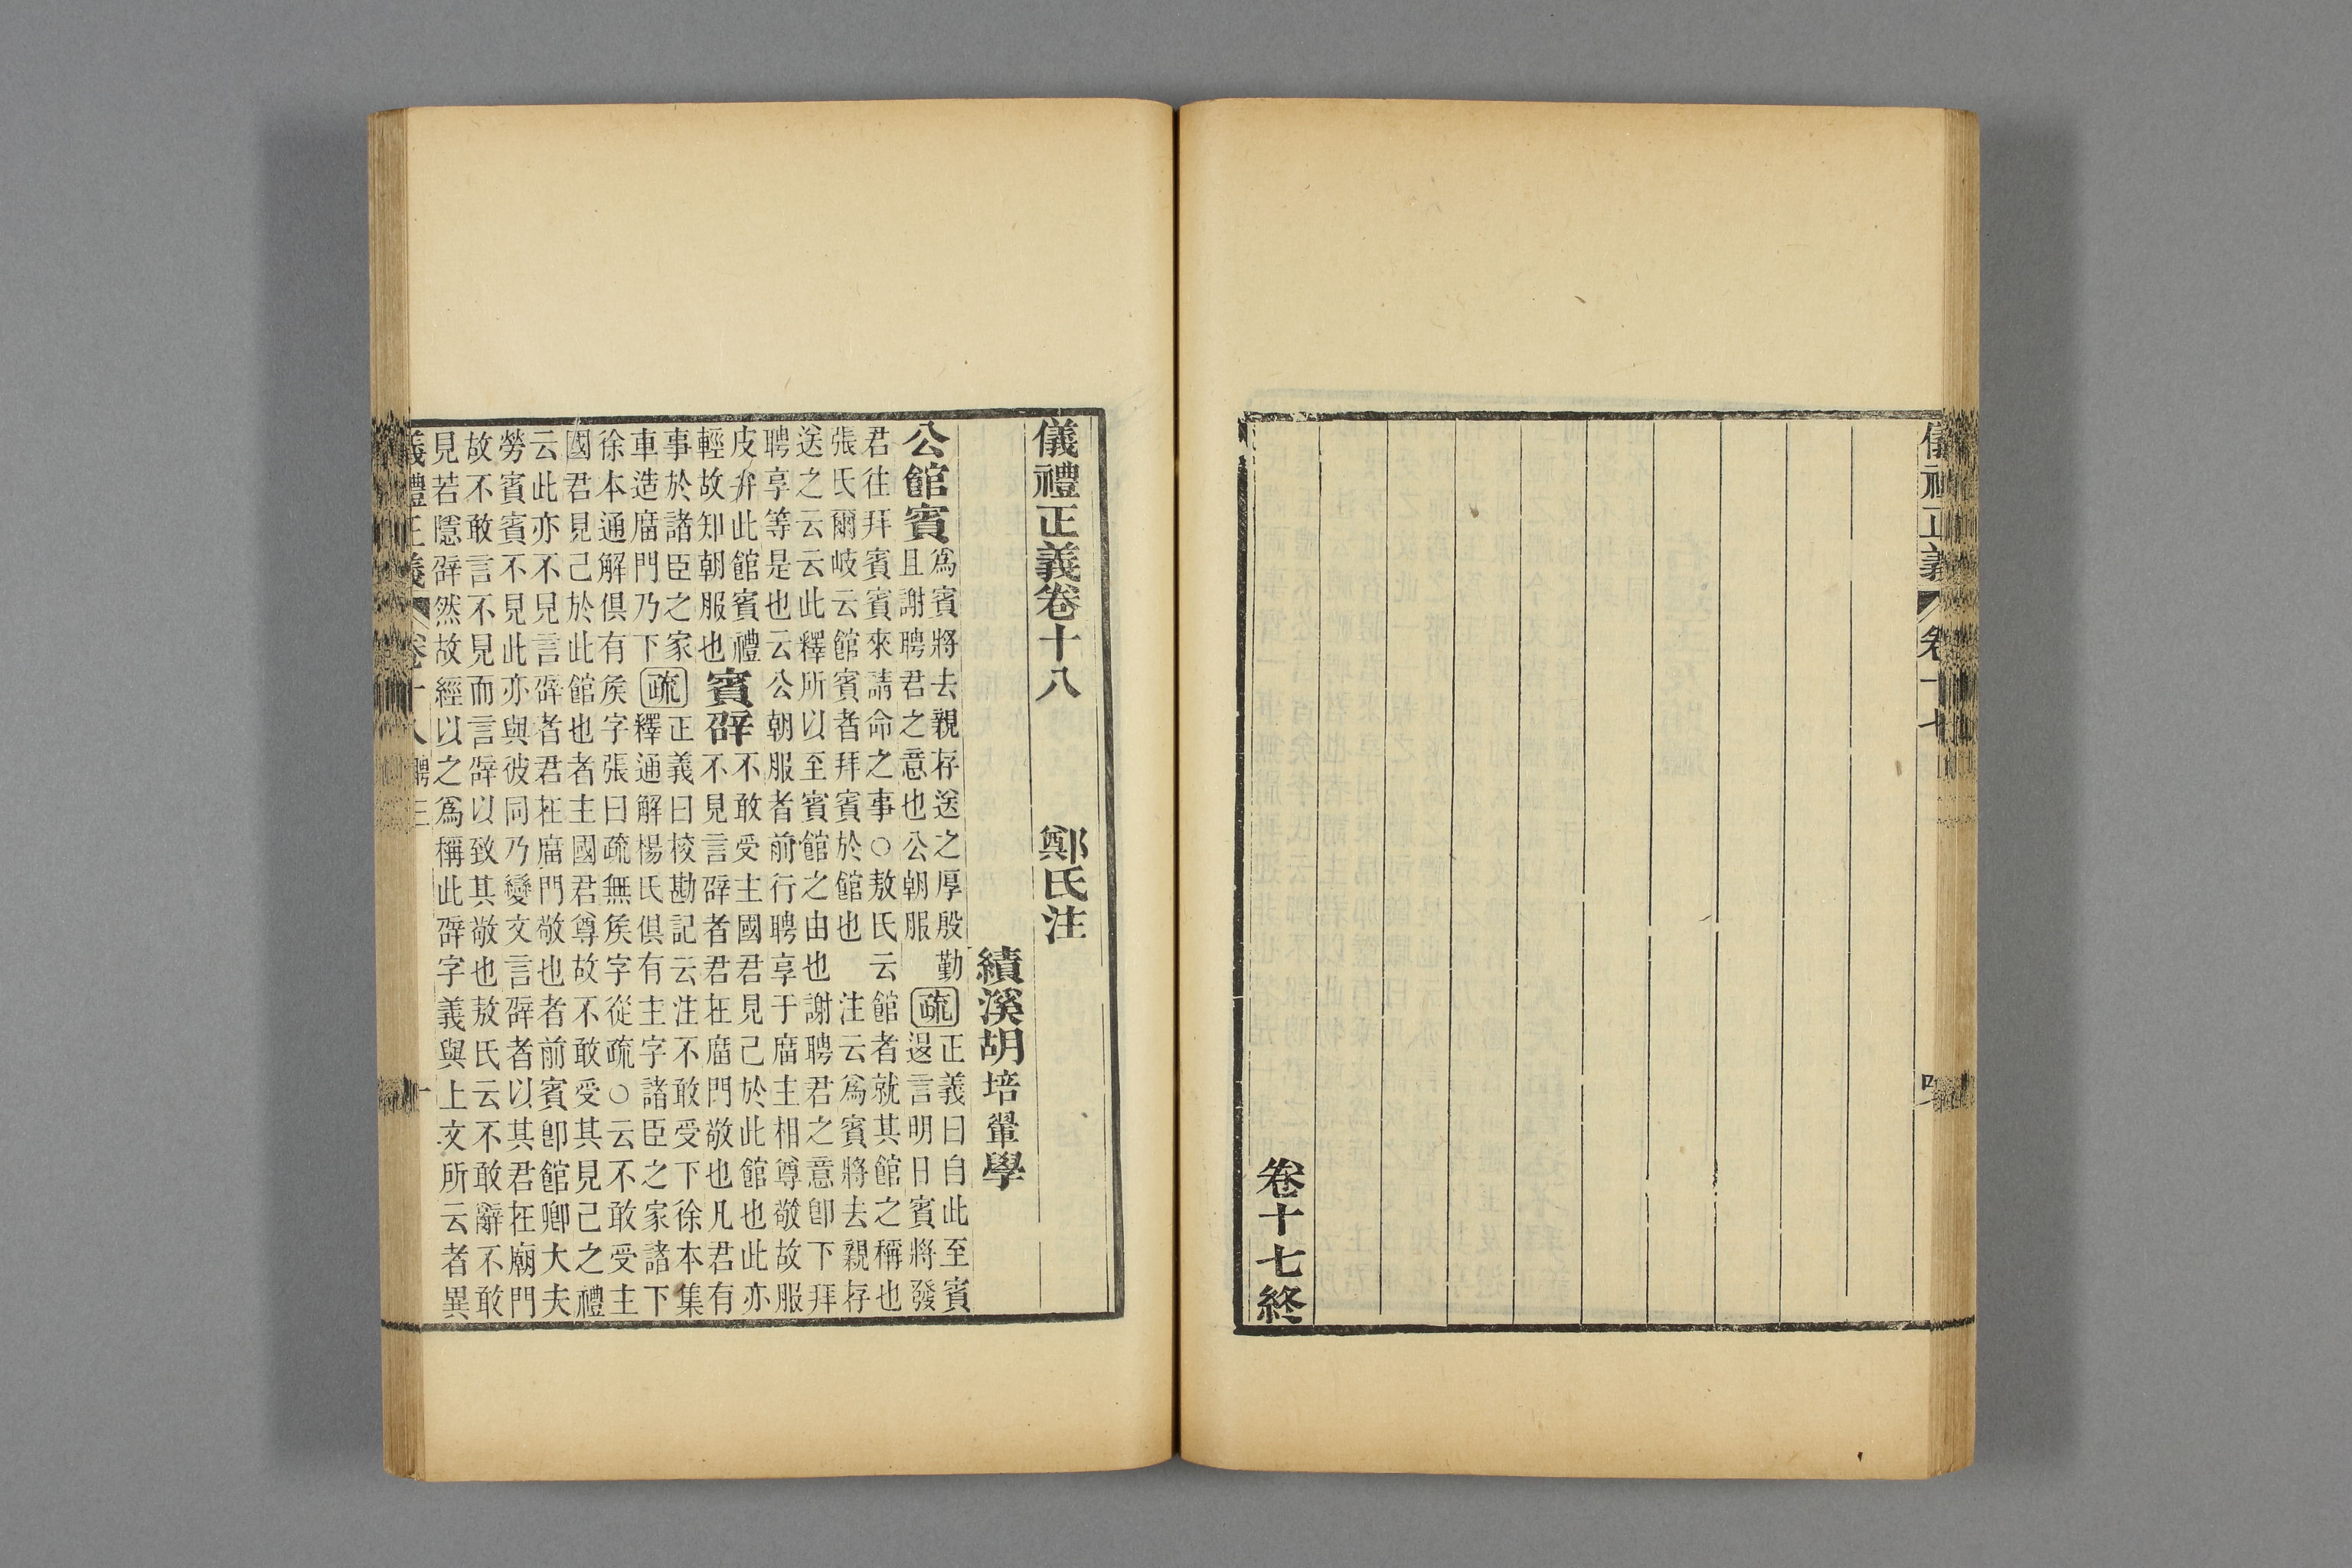 儀禮正義 卷十七
卷十七終
儀禮正義卷十八 鄭氏注
績溪胡培翬學
公館賓
爲賓將去親存送之厚殷勤
且謝聘君之意也公朝服
疏
正義曰自此至賓
遐言明日賓將發
君往拜賓賓來請命之事○敖氏云館者就其館之稱也
張氏爾岐云館賓者拜賓於館也 注云爲賓將去親存
送之云云此釋所以至賓館之由也謝聘君之意卽下拜
聘享等是也云公朝服者前行聘享于庿主相尊敬故服
皮弁此館賓禮
輕故知朝服也
賓辟
不敢受主國君見己於此館也此亦
不見言辟者君在庿門敬也凡君有
事於諸臣之家
車造庿門乃下
疏
正義曰校勘記云注不敢受下徐本集
釋通解楊氏俱有主字諸臣之家諸下
徐本通解俱有矦字張曰疏無矦字從疏○云不敢受主
國君見己於此館也者主國君尊故不敢受其見己之禮
云此亦不見言辟者君在庿門敬也者前賓卽館卿大夫
勞賓賓不見此亦與彼同乃變文言辟者以其君在廟門
故不敢言不見而言辟以致其敬也敖氏云不敢辭不敢
見若隱辟然故經以之爲稱此辟字義與上文所云者異
儀禮正義 卷十八 聘三 一